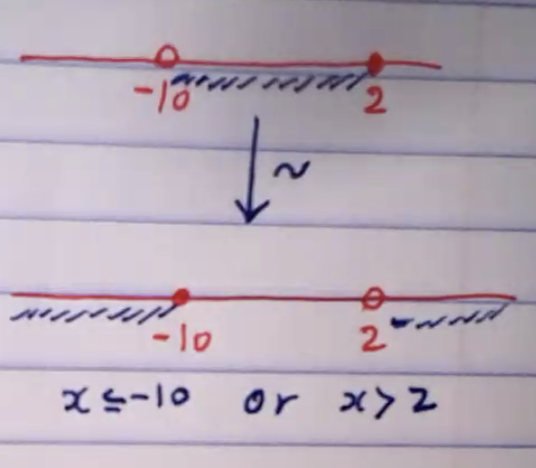 -10 2
~
-10 2
x ≤ -10 or x > 2